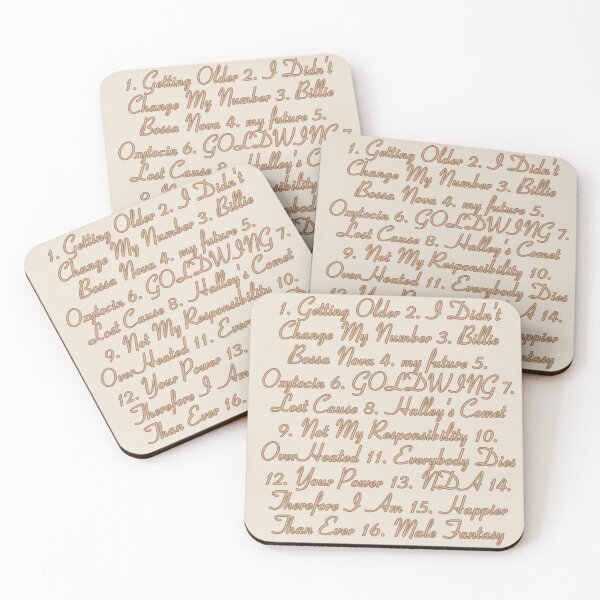 1. Getting Older 2. I Didn't
Change My Number 3. Billie
Bossa Nova 4. my future 5.
Oxytocin 6. GOLDWING 7.
Lost Cause Halley's Comet
9.
Everybody
1. Getting Older 2. I Didn't
Change My Number 3. Billie
Bossa Nova 4. my future 5.
Oxytocin 6. GOLDWING 7.
Lost Cause 8. Halley's Comet
9. Not My Responsibility 10.
OverHeated 11. Everybody Dies
14.
Happier
Fantasy
1. Getting Older 2. I Didn't
Change My Number 3. Billie
Bossa Nova 4. my future 5.
Oxytocin 6. GOLDWING 7.
Lost Cause 8. Halley's Comet
9. Not My Responsibility 10.
OverHeated 11.
12. Your Power 13.
Therefore I Am
Than Ever 16.
1. Getting Older 2. I Didn't
Change My Number 3. Billie
Bossa Nova 4. my future 5.
Oxytocin 6. GOLDWING 7.
Lost Cause 8. Halley's Comet
9. Not My Responsibility 10.
OverHeated 11. Everybody Dies
12. Your Power 13. NDA 14.
Therefore I Am 15. Happier
Than Ever 16. Male Fantasy